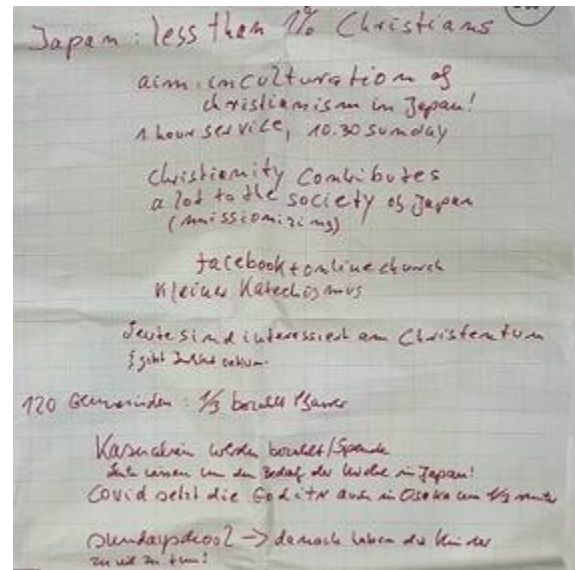 Japan: less than 1% Christians
aim: inculturation of
christianism in Japan!
1 hour service, 10.30 sunday
christianity contributes
a lot to the society of Japan
(missionizing)
facebook + online church
Kleiner Katechismus
Leute sind interessiert am Christentum
120 Gemeinden: 1/3 bezahlt Pfarrer
Kasualien werden bezahlt/Spende
Leute wissen um den Bedarf der Kirche in Japan!
Covid setzt die Godi TN auch in Osaka um 1/3 runter
Sundayschool -> danach haben die Kinder
zu viel zu tun!